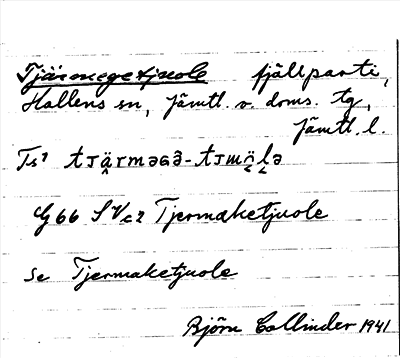 Tjärmegetjuole fjällparti,
Hallens sn, Jämtl. v. doms. tg,
Jämtl. l.
G 66 SVc2 Tjermaketjuole
se Tjermaketjuole
Björn Collinder 1941